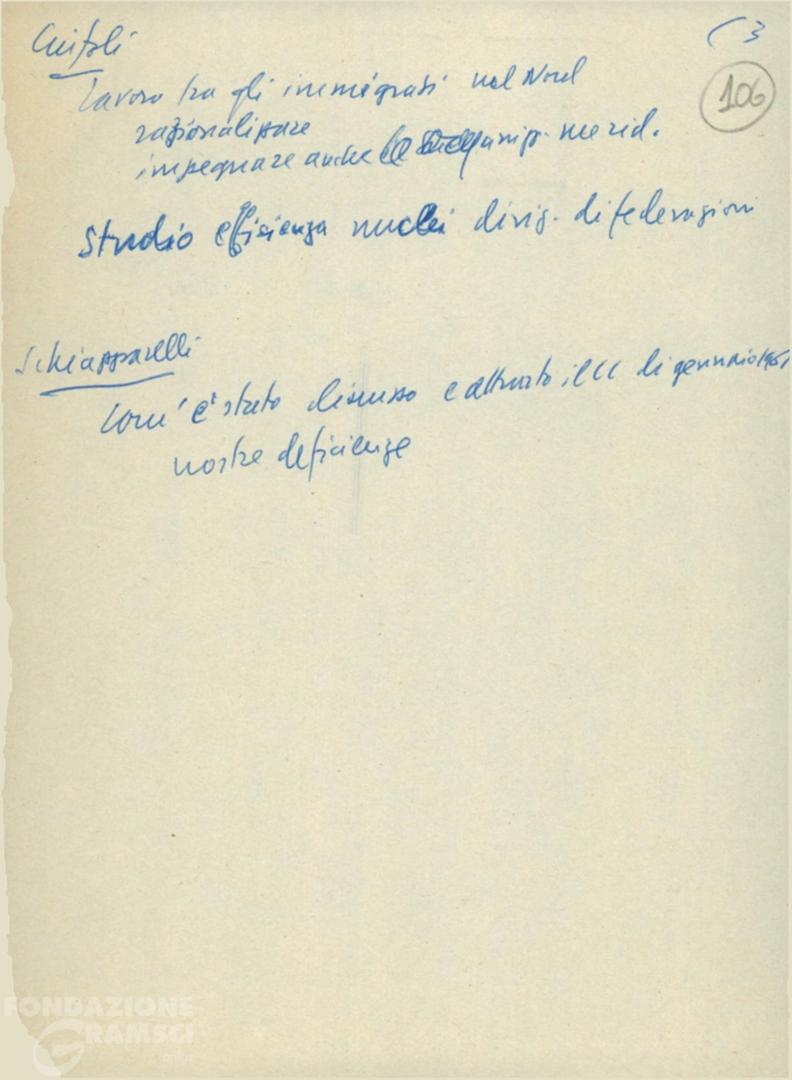 ( 3
106
Lavoro tra gli immigrati nel Nord
razionalizzare
impegnare anche merid.
Studio efficienza nuclei dirig. di federazioni
Schiapparelli
Com'è stato discusso e attuato il CC di gennaio 1961
nostre deficienze
FONDAZIONE
GRAMSCI